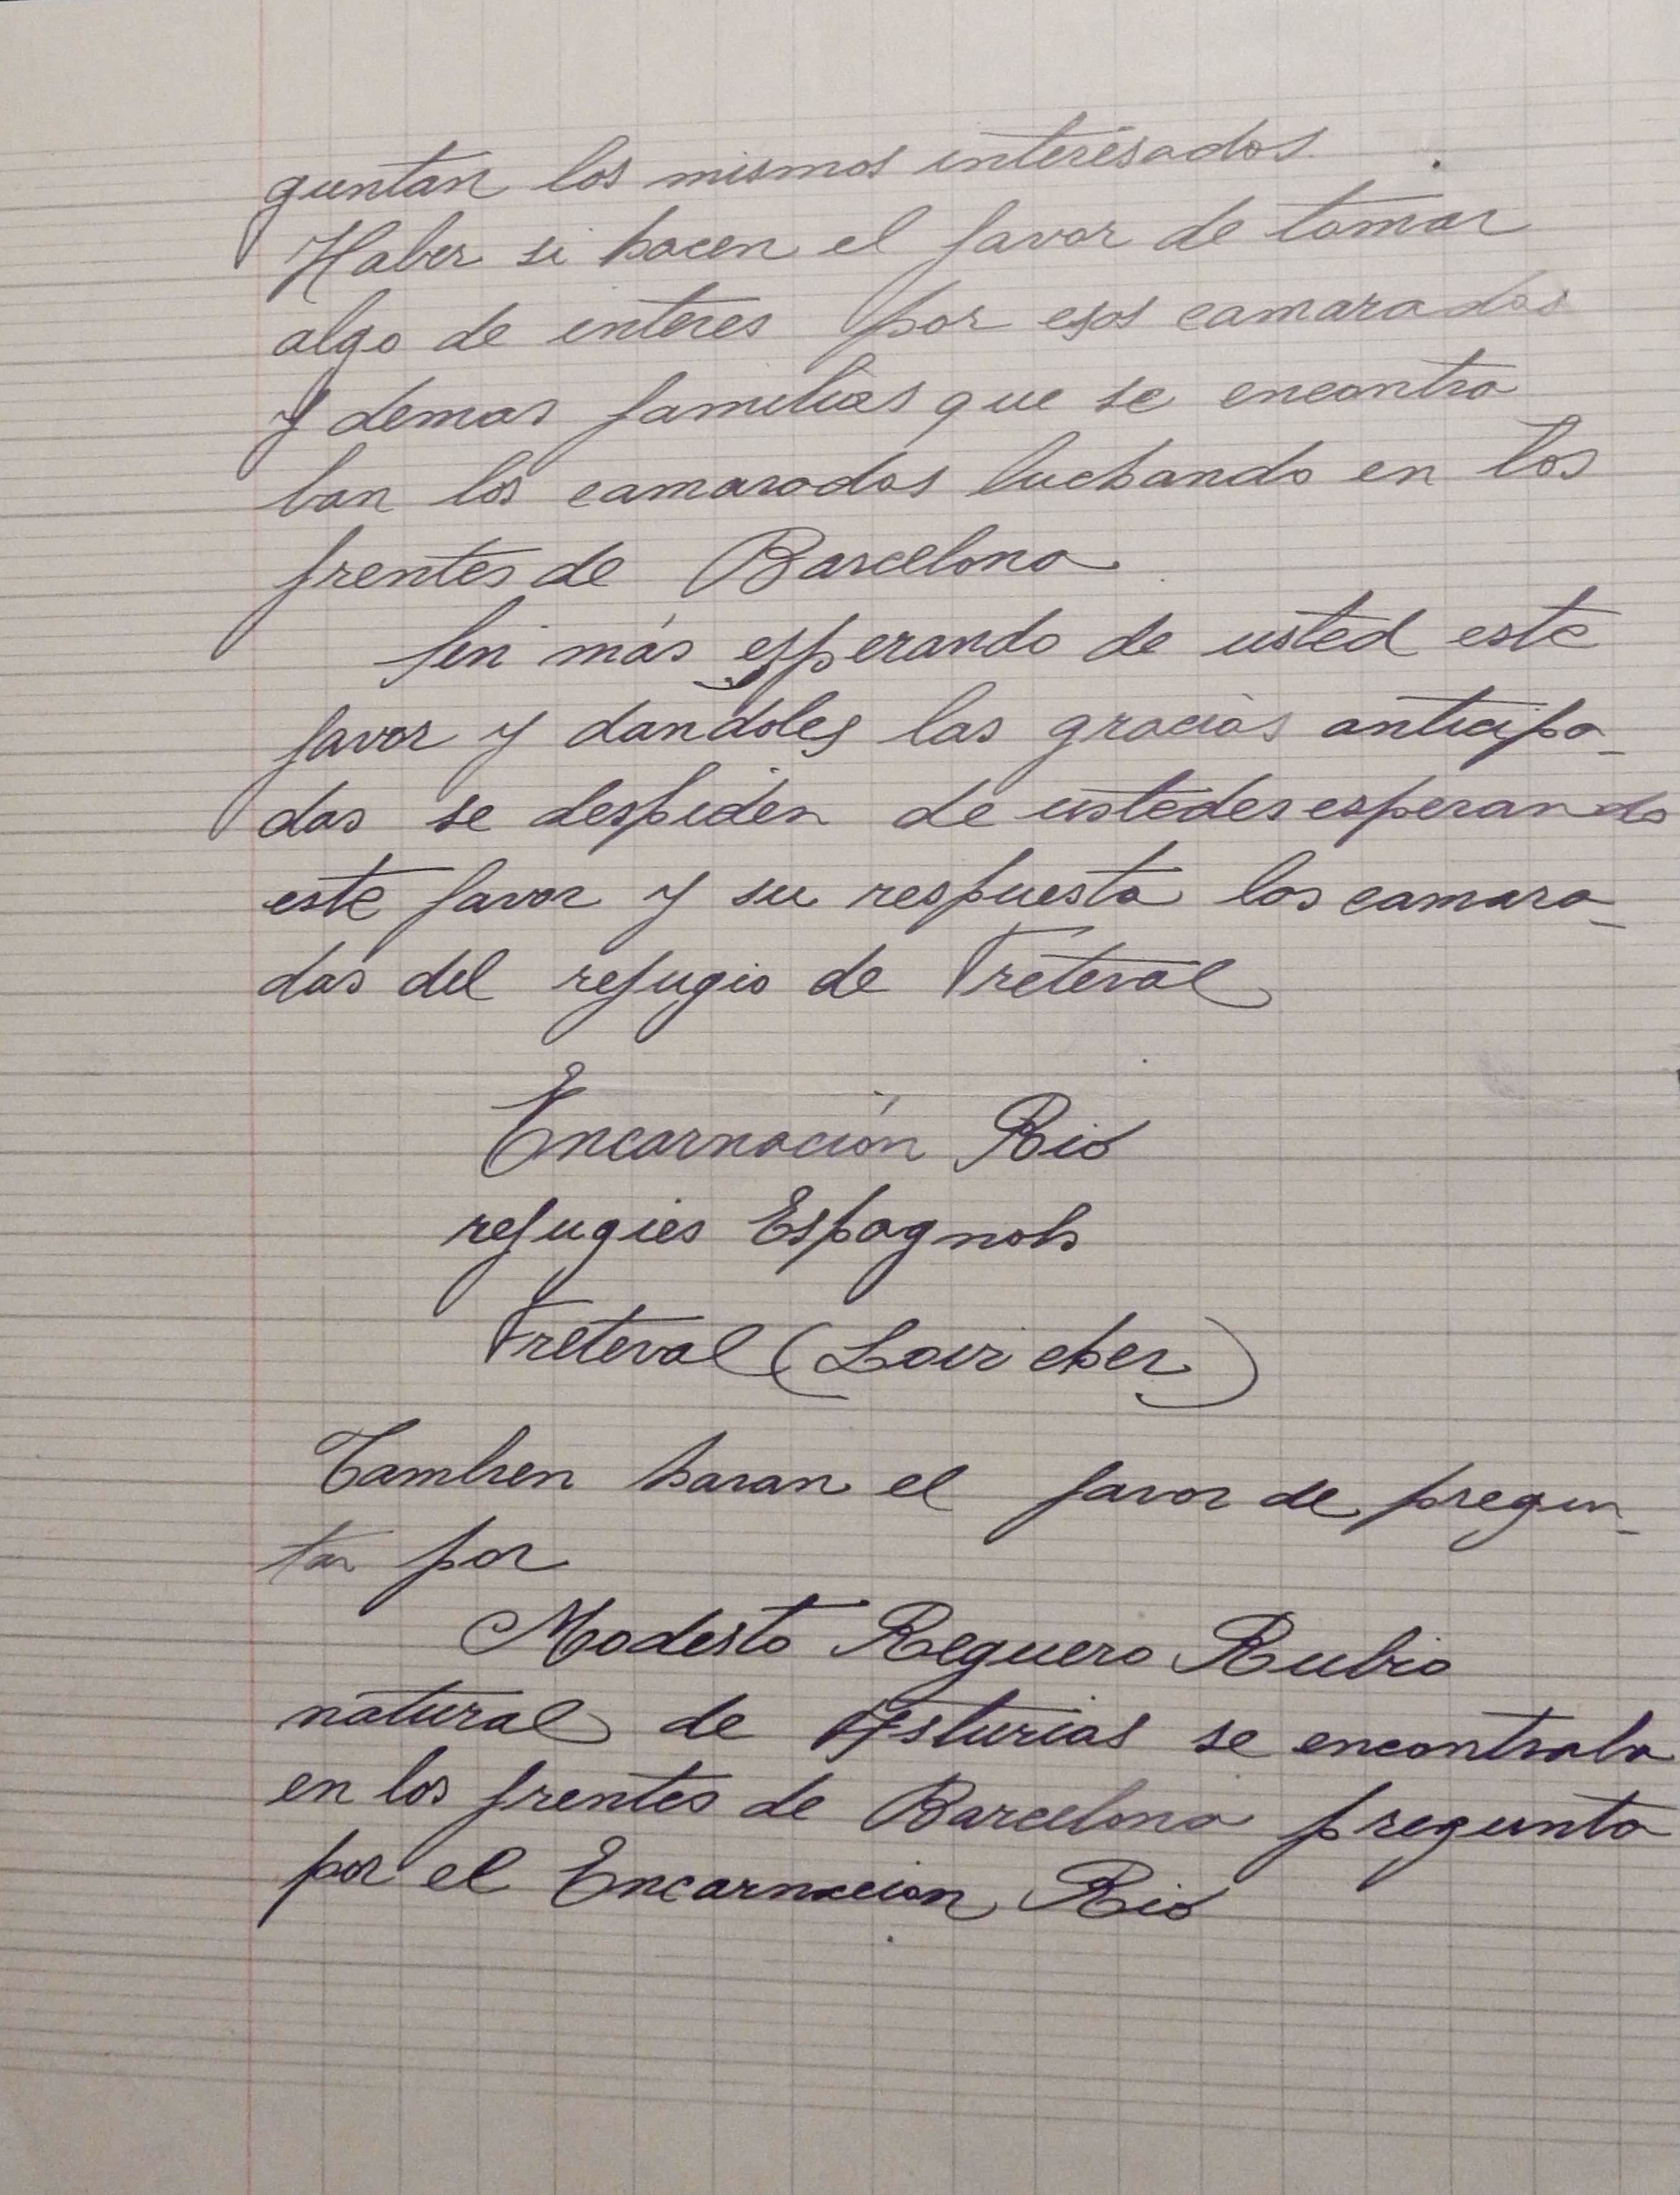 guntan los mismos interesados.
Haber si hacen el favor de tomar
algo de interes por esos camaradas
y demas familias que se encontra
ban los camaradas luchando en los
frentes de Barcelona
Sin más esperando de usted este
favor y dandoles las gracias anticipa-
das se despiden de ustedes esperando
este favor y su respuesta los camara-
das del refugio de Freteval
Encarnación Rio
refugies Espagnols
Freteval (Loir cher)
Tambien haran el favor de pregun-
tar por
Modesto Reguero Rubio
natural de Asturias se encontraba
en los frentes de Barcelona pregunta
por el Encarnacion Rio